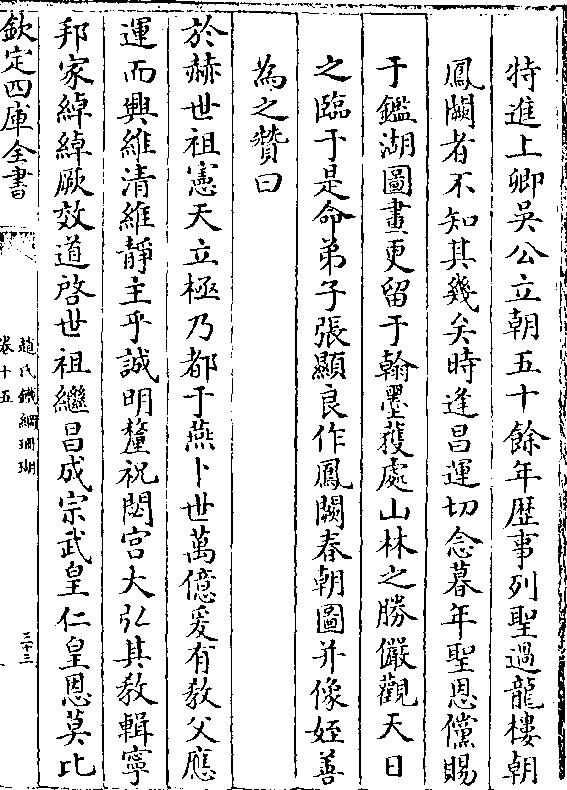 特進上卿吳公立朝五十餘年歴事列聖過龍樓朝
鳳闕者不知其幾矣時逢昌運切念暮年聖恩儻賜
于鑑湖圖畫更留于翰墨蓰處山林之勝儼觀天日
之臨于是命弟子張顯良作鳳闕春朝圖并像姪善
為之贊曰
於赫世祖憲天立極乃都于燕卜世萬億爰有教父應
運而興維清維靜主乎誠明釐祝閟宫大弘其教輯寧
邦家綽綽厥效道啓世祖繼昌成宗武皇仁皇恩莫比
欽定四庫全書
趙氏鐵網珊瑚
卷十五
三十三